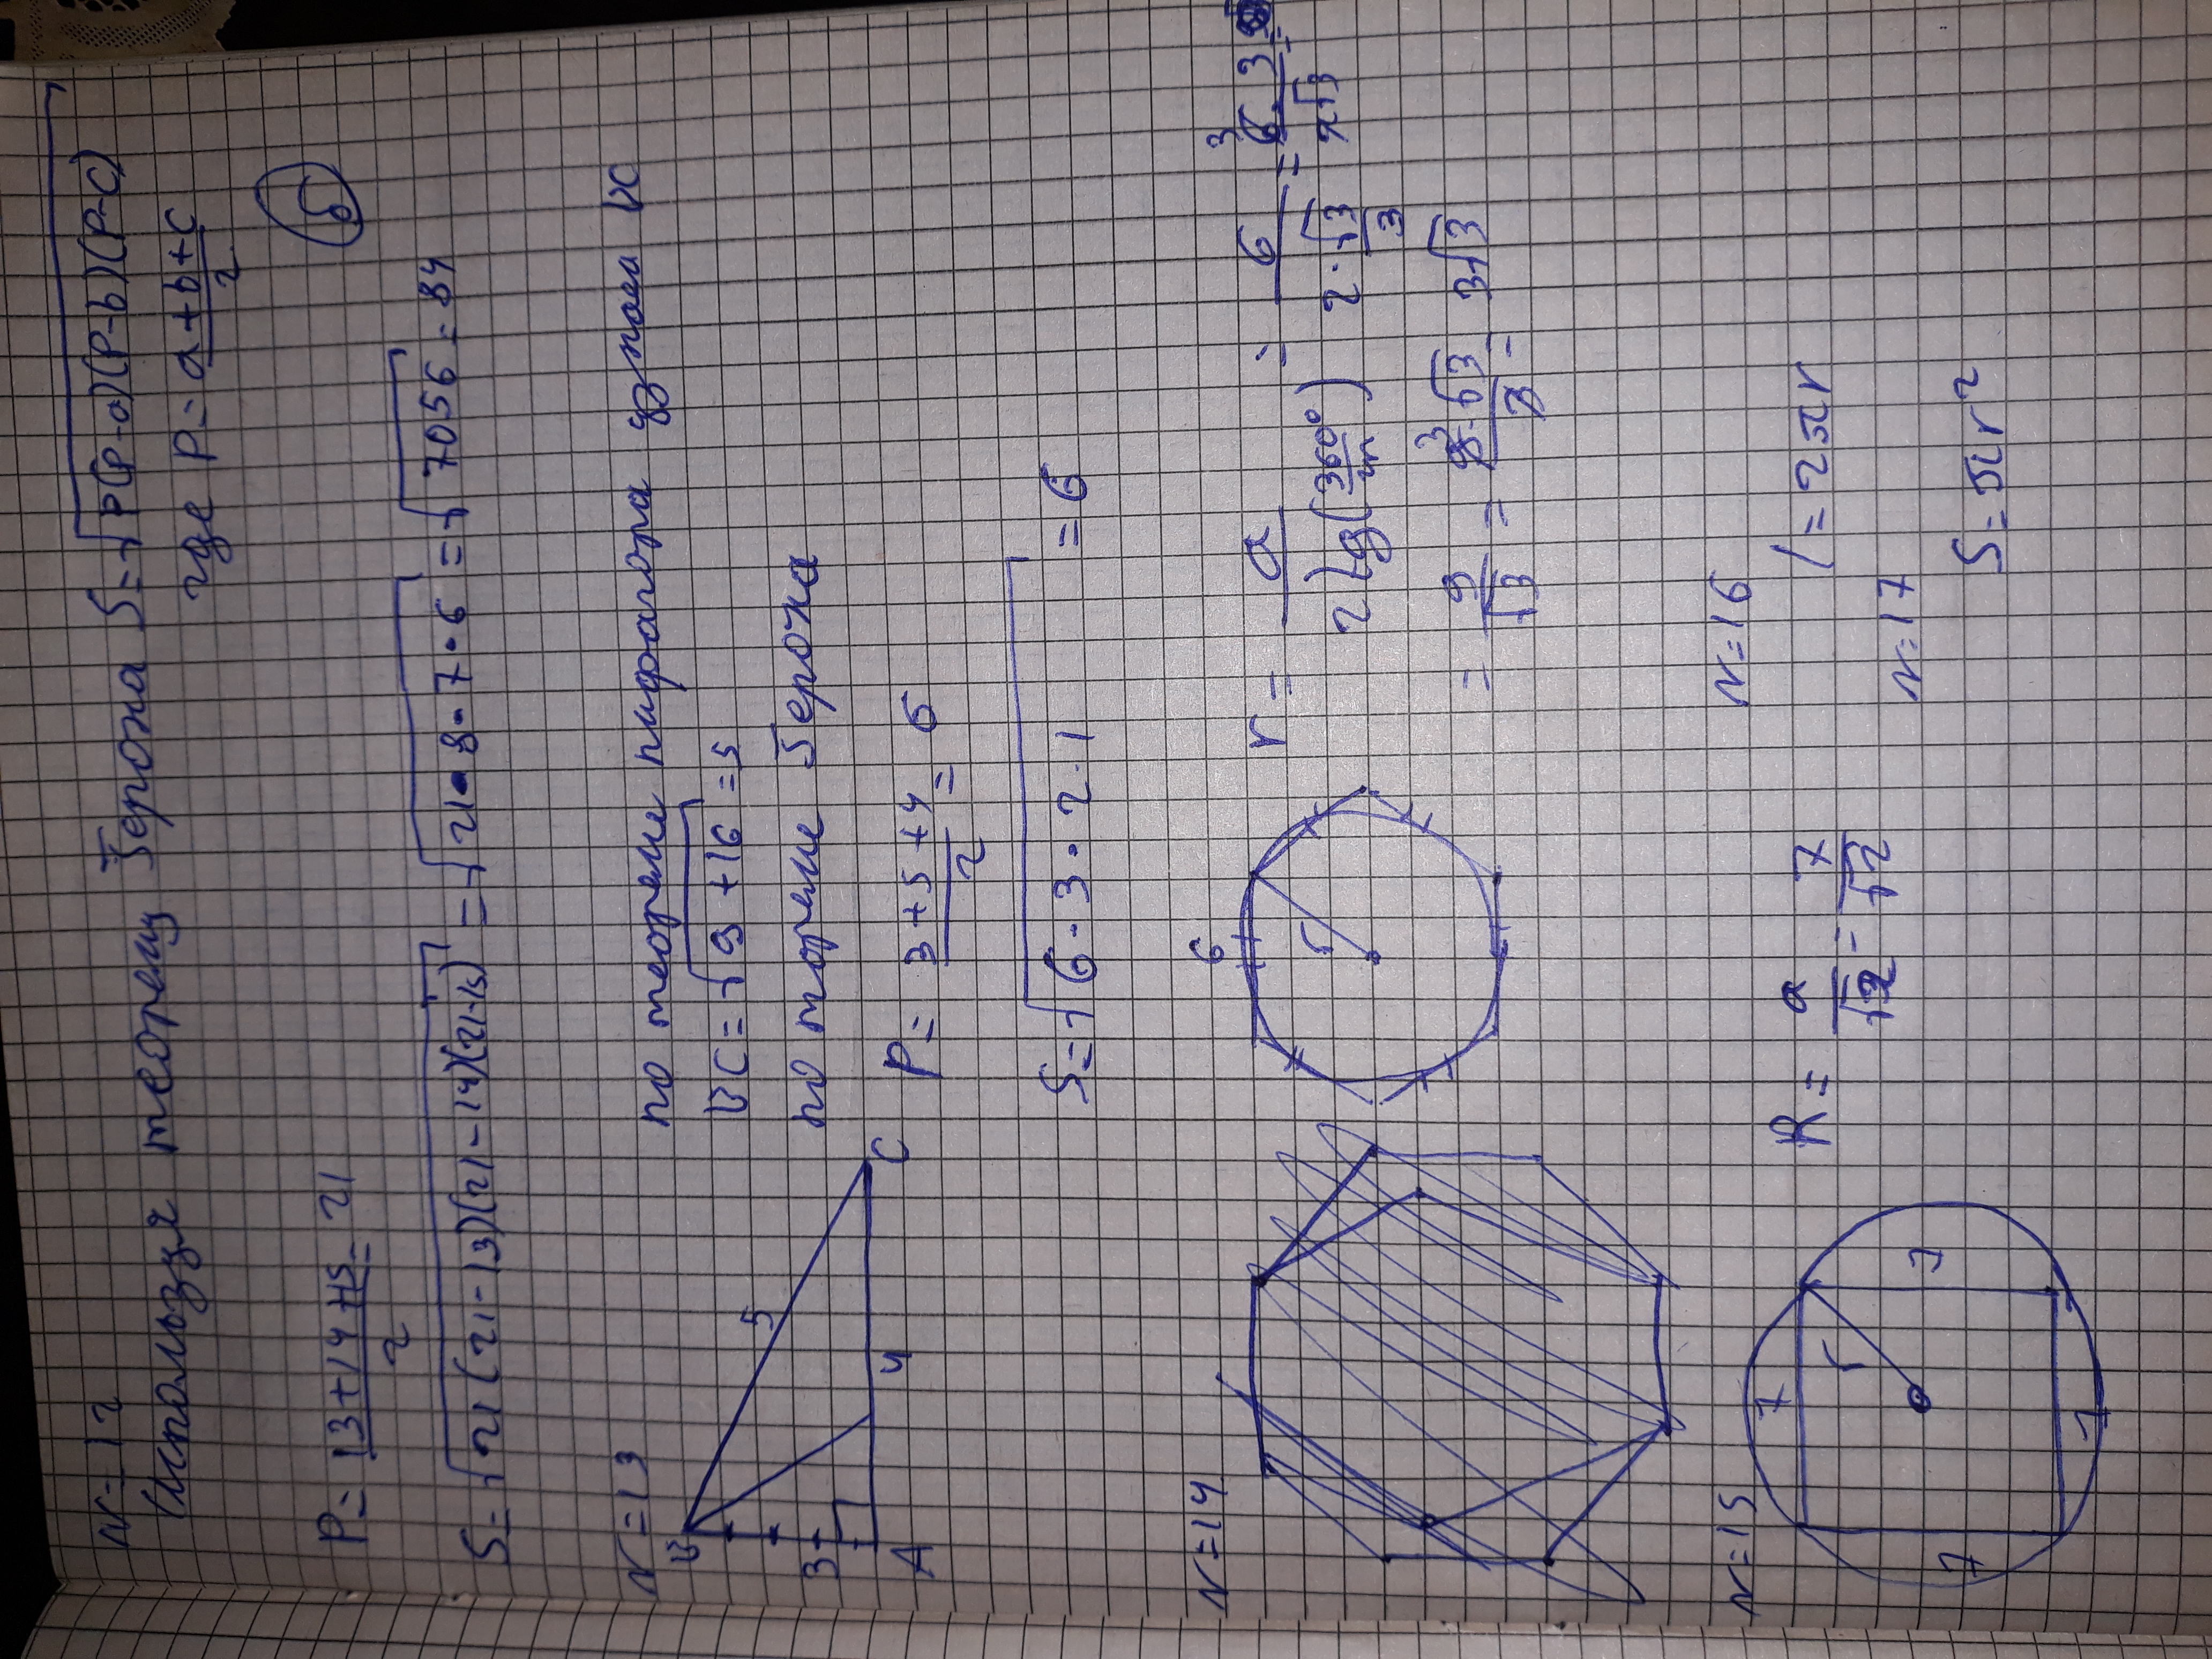 N=12
Используя теорему Герона S=√P(P-a)(P-b)(P-c)
где P=a+b+c/2
P=13+14+15/2=21
Б
S=√21(21-13)(21-14)(21-15)=√21•8•7•6=√7056=84
N=13
по теореме пифагора узнаем BC
BC=√9+16=5
по тореме Герона
P=3+5+4/2=6
S=√6•3•2•1=6
B
5
3
4
A
C
N=14
6
r
r=a/2tg(360°/2n)=6/2•√3/3=6•3/2√3=
=9/√3=9•√3/3=3√3
N=15
7
7
7
7
r
R=a/√2=7/√2
N=16
l=2πr
N=17
S=πr²